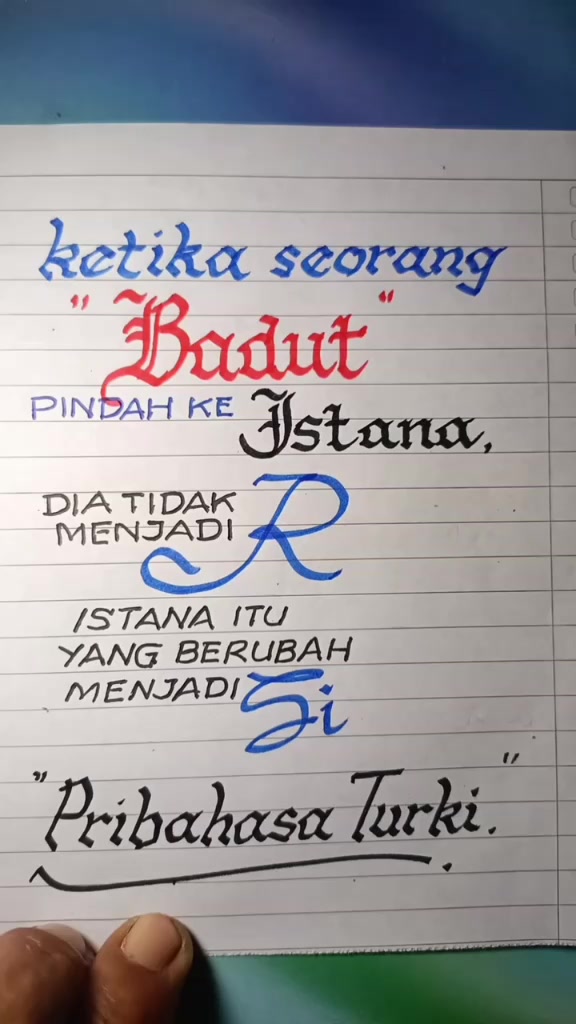 ketika seorang
"Badut"
PINDAH KE Istana,
DIA TIDAK
MENJADI R
ISTANA ITU
YANG BERUBAH
MENJADI Si
"Pribahasa Turki."